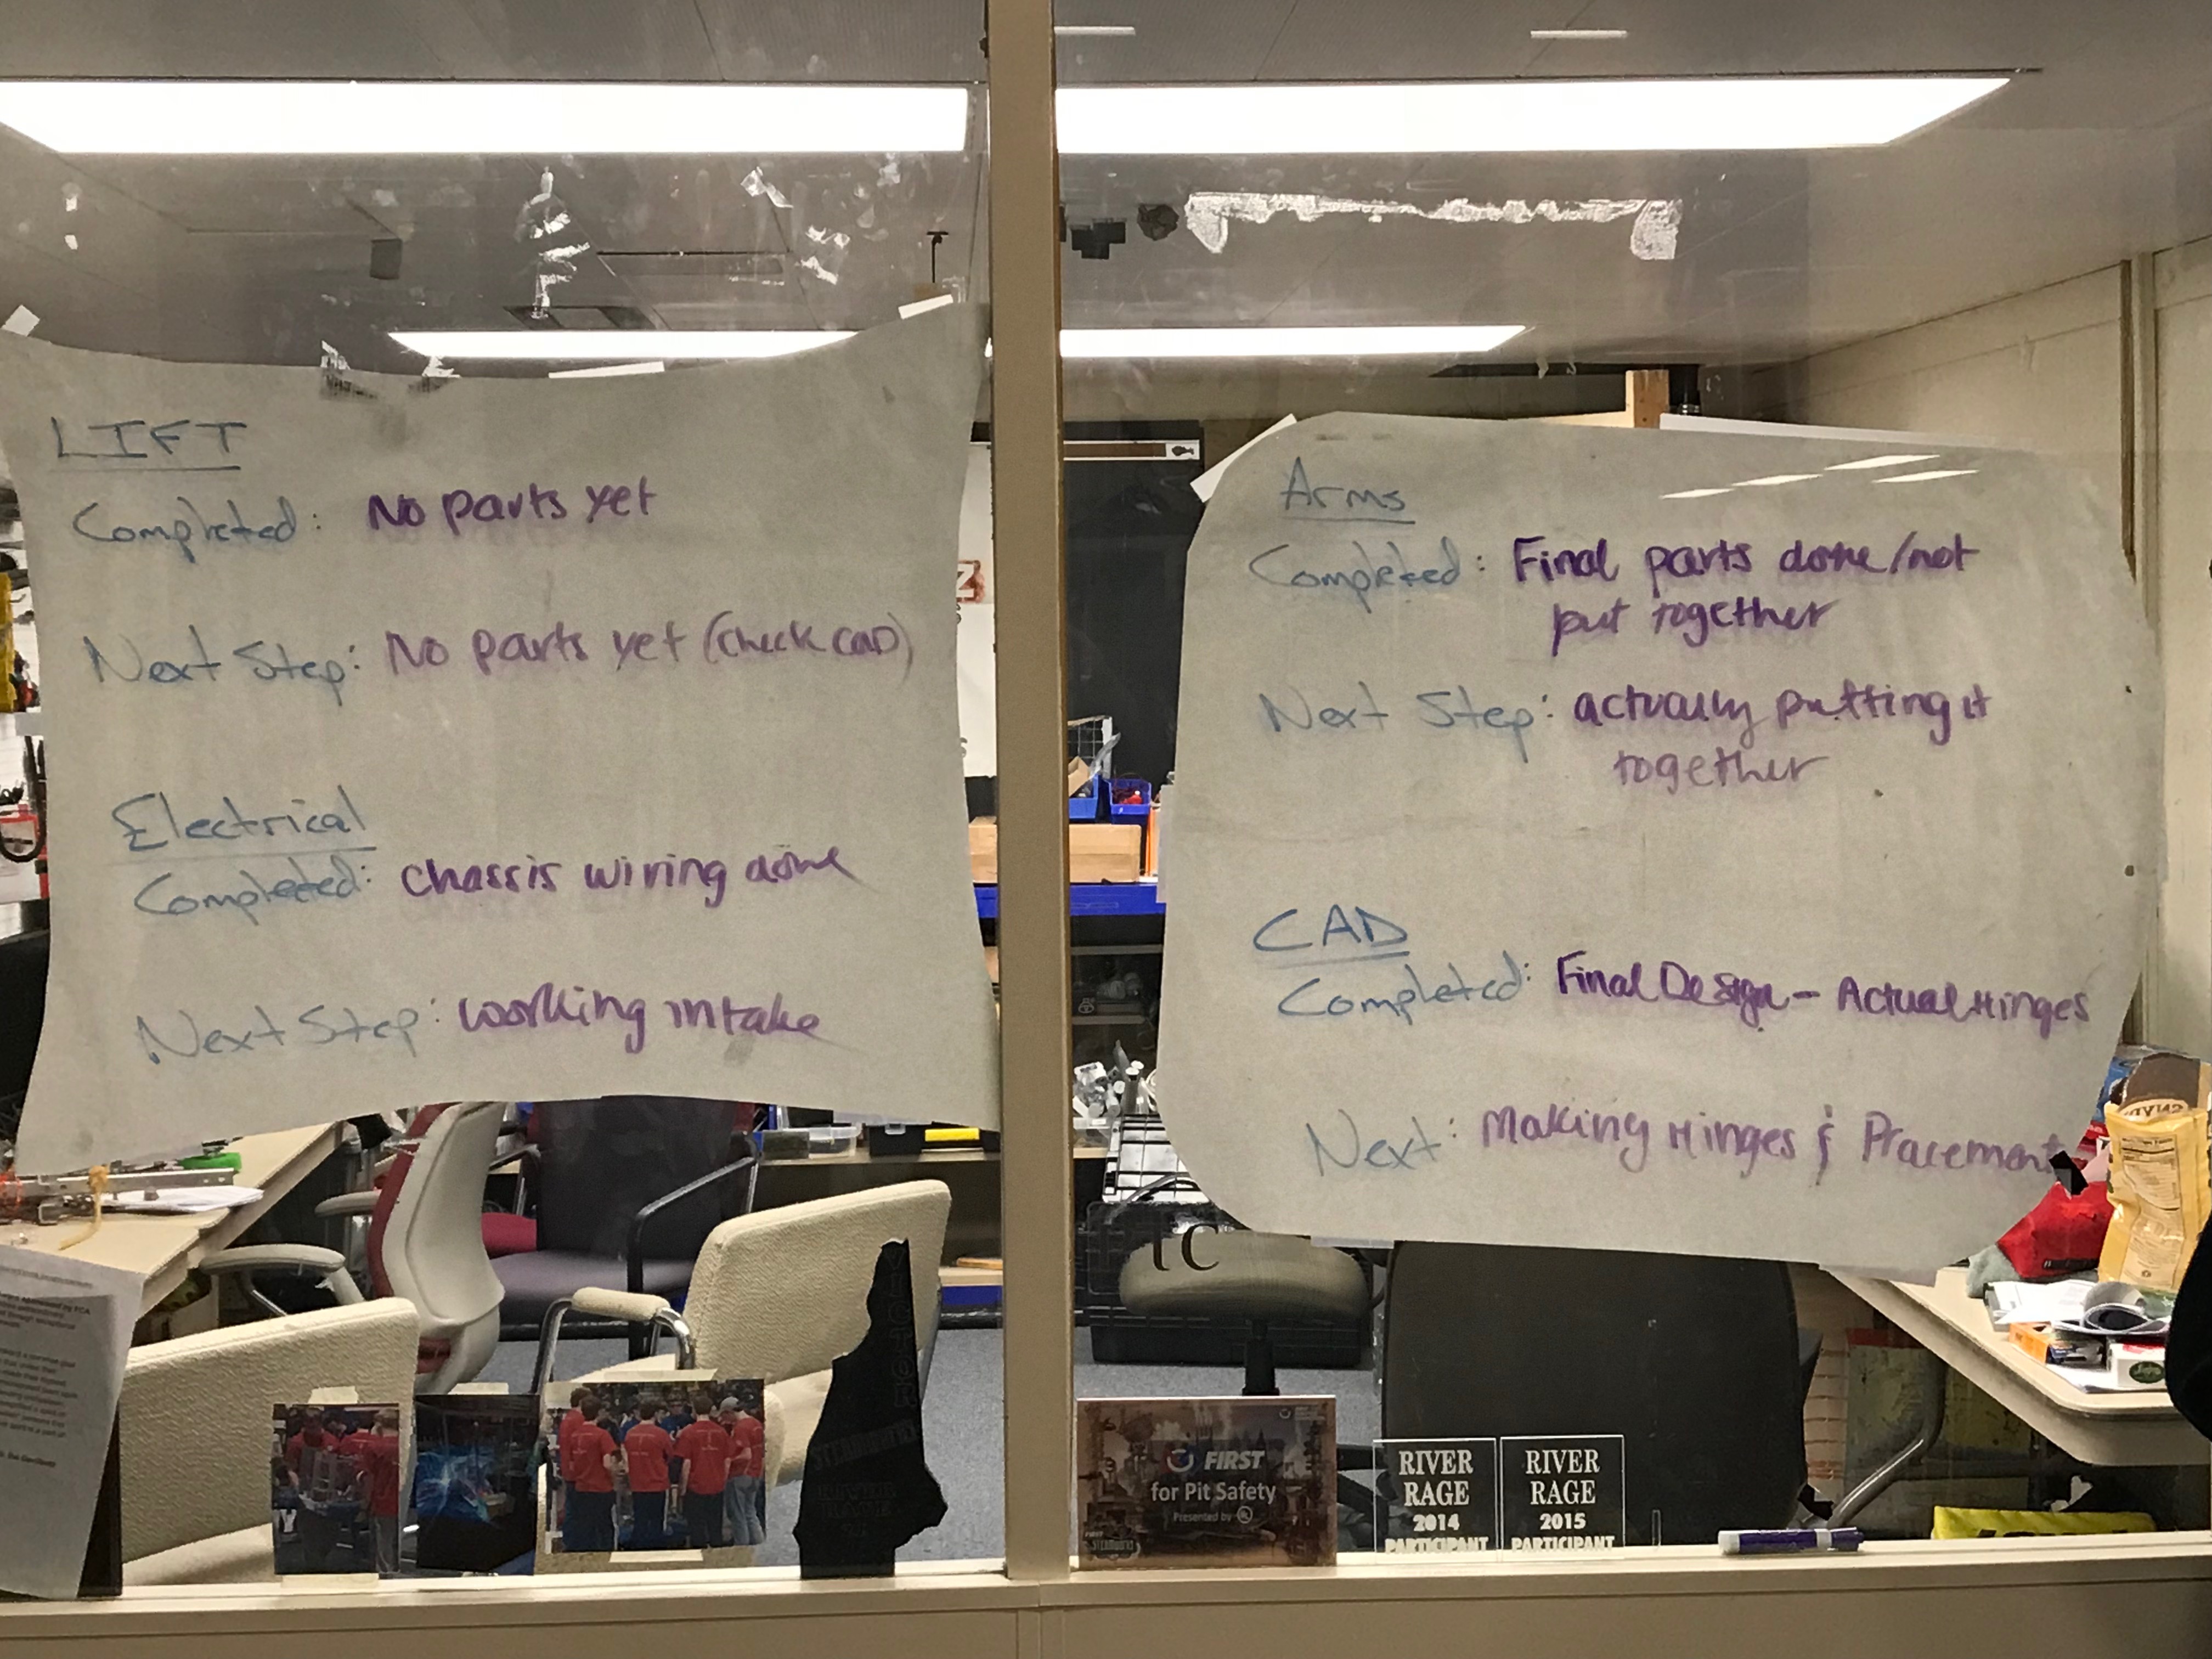 LIFT
Completed: No parts yet
Next Step: No parts yet (check CAD)
Electrical
Completed: chassis wiring done
Next Step: working intake
Arms
Completed: Final parts done/not
put together
Next Step: actually putting it
together
CAD
Completed: Final Design - Actual Hinges
Next: Making Hinges & Placement
FIRST
for Pit Safety
Presented by UL
RIVER
RAGE
2014
PARTICIPANT
RIVER
RAGE
2015
PARTICIPANT